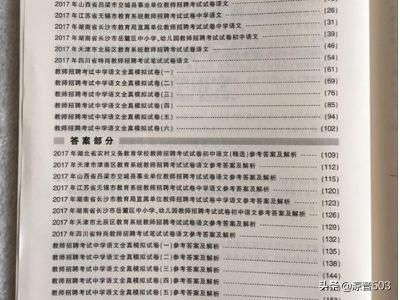 2017年山西省吕梁市交城县事业单位教师招聘考试试卷语文
2017年江苏省无锡市教育系统教师招聘考试试卷中学语文 (31)
2017年湖南省长沙市教育局直属单位教师招聘考试试卷中学语文 (39)
2017年湖南省长沙市岳麓区中小学、幼儿园教师招聘考试试卷初中语文 (39)
2017年天津市北辰区教育系统教师招聘考试试卷语文 (54)
2017年四川省特岗教师招聘考试笔试试卷语文 (61)
教师招聘考试中学语文全真模拟试卷(一) (69)
教师招聘考试中学语文全真模拟试卷(二) (76)
教师招聘考试中学语文全真模拟试卷(三) (85)
教师招聘考试中学语文全真模拟试卷(四) (94)
教师招聘考试中学语文全真模拟试卷(五) (102)
教师招聘考试中学语文全真模拟试卷(六)
答案部分
2017年湖北省农村义务教育学校教师招聘考试试卷初中语文(精选)参考答案及解析 (109)
2017年天津市津南区教育系统教师招聘考试试卷语文参考答案及解析 (112)
2017年山西省吕梁市交城县事业单位教师招聘考试试卷语文参考答案及解析 (115)
2017年江苏省无锡市教育系统教师招聘考试试卷中学语文参考答案及解析 (120)
2017年湖南省长沙市教育局直属单位教师招聘考试试卷中学语文参考答案及解析 (123)
2017年湖南省长沙市岳麓区中小学、幼儿园教师招聘考试试卷初中语文参考答案及解析 (126)
2017年天津市北辰区教育系统教师招聘考试试卷语文参考答案及解析 (129)
2017年四川省特岗教师招聘考试笔试试卷语文参考答案及解析 (132)
教师招聘考试中学语文全真模拟试卷(一)参考答案及解析 (135)
教师招聘考试中学语文全真模拟试卷(二)参考答案及解析 (138)
教师招聘考试中学语文全真模拟试卷(三)参考答案及解析
教师招聘考试中学语文全真模拟试卷(四)参考答案及解析 (144)
教师招聘考试中学语文全真模拟试卷(五)参考答案及解析
头条@原晋503